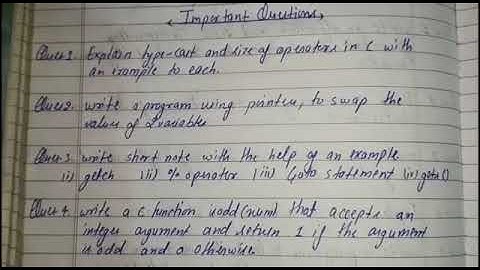 Important Questions
Ques 1. Explain type-cast and size of operators in C with
an example to each.
Ques 2. write a program using pointer, to swap the
value of 2 variables
Ques. 3 write short note with the help of an example
(i) getch (ii) % operator (iii) Goto statement (iv) gets()
Ques 4. write a C function isodd(num) that accepts an
integer argument and return 1 if the argument
is odd and 0 otherwise.